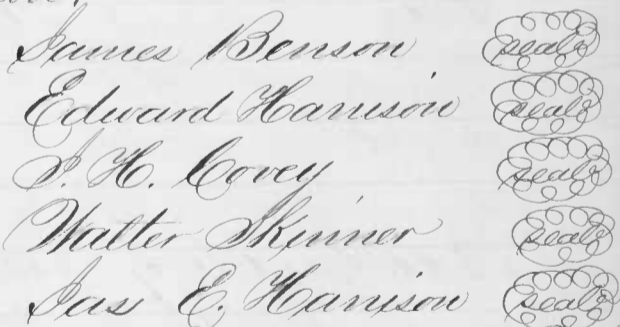 James Benson seal
Edward Harrison seal
J. H. Covey seal
Walter Skinner seal
Jas E. Harrison seal